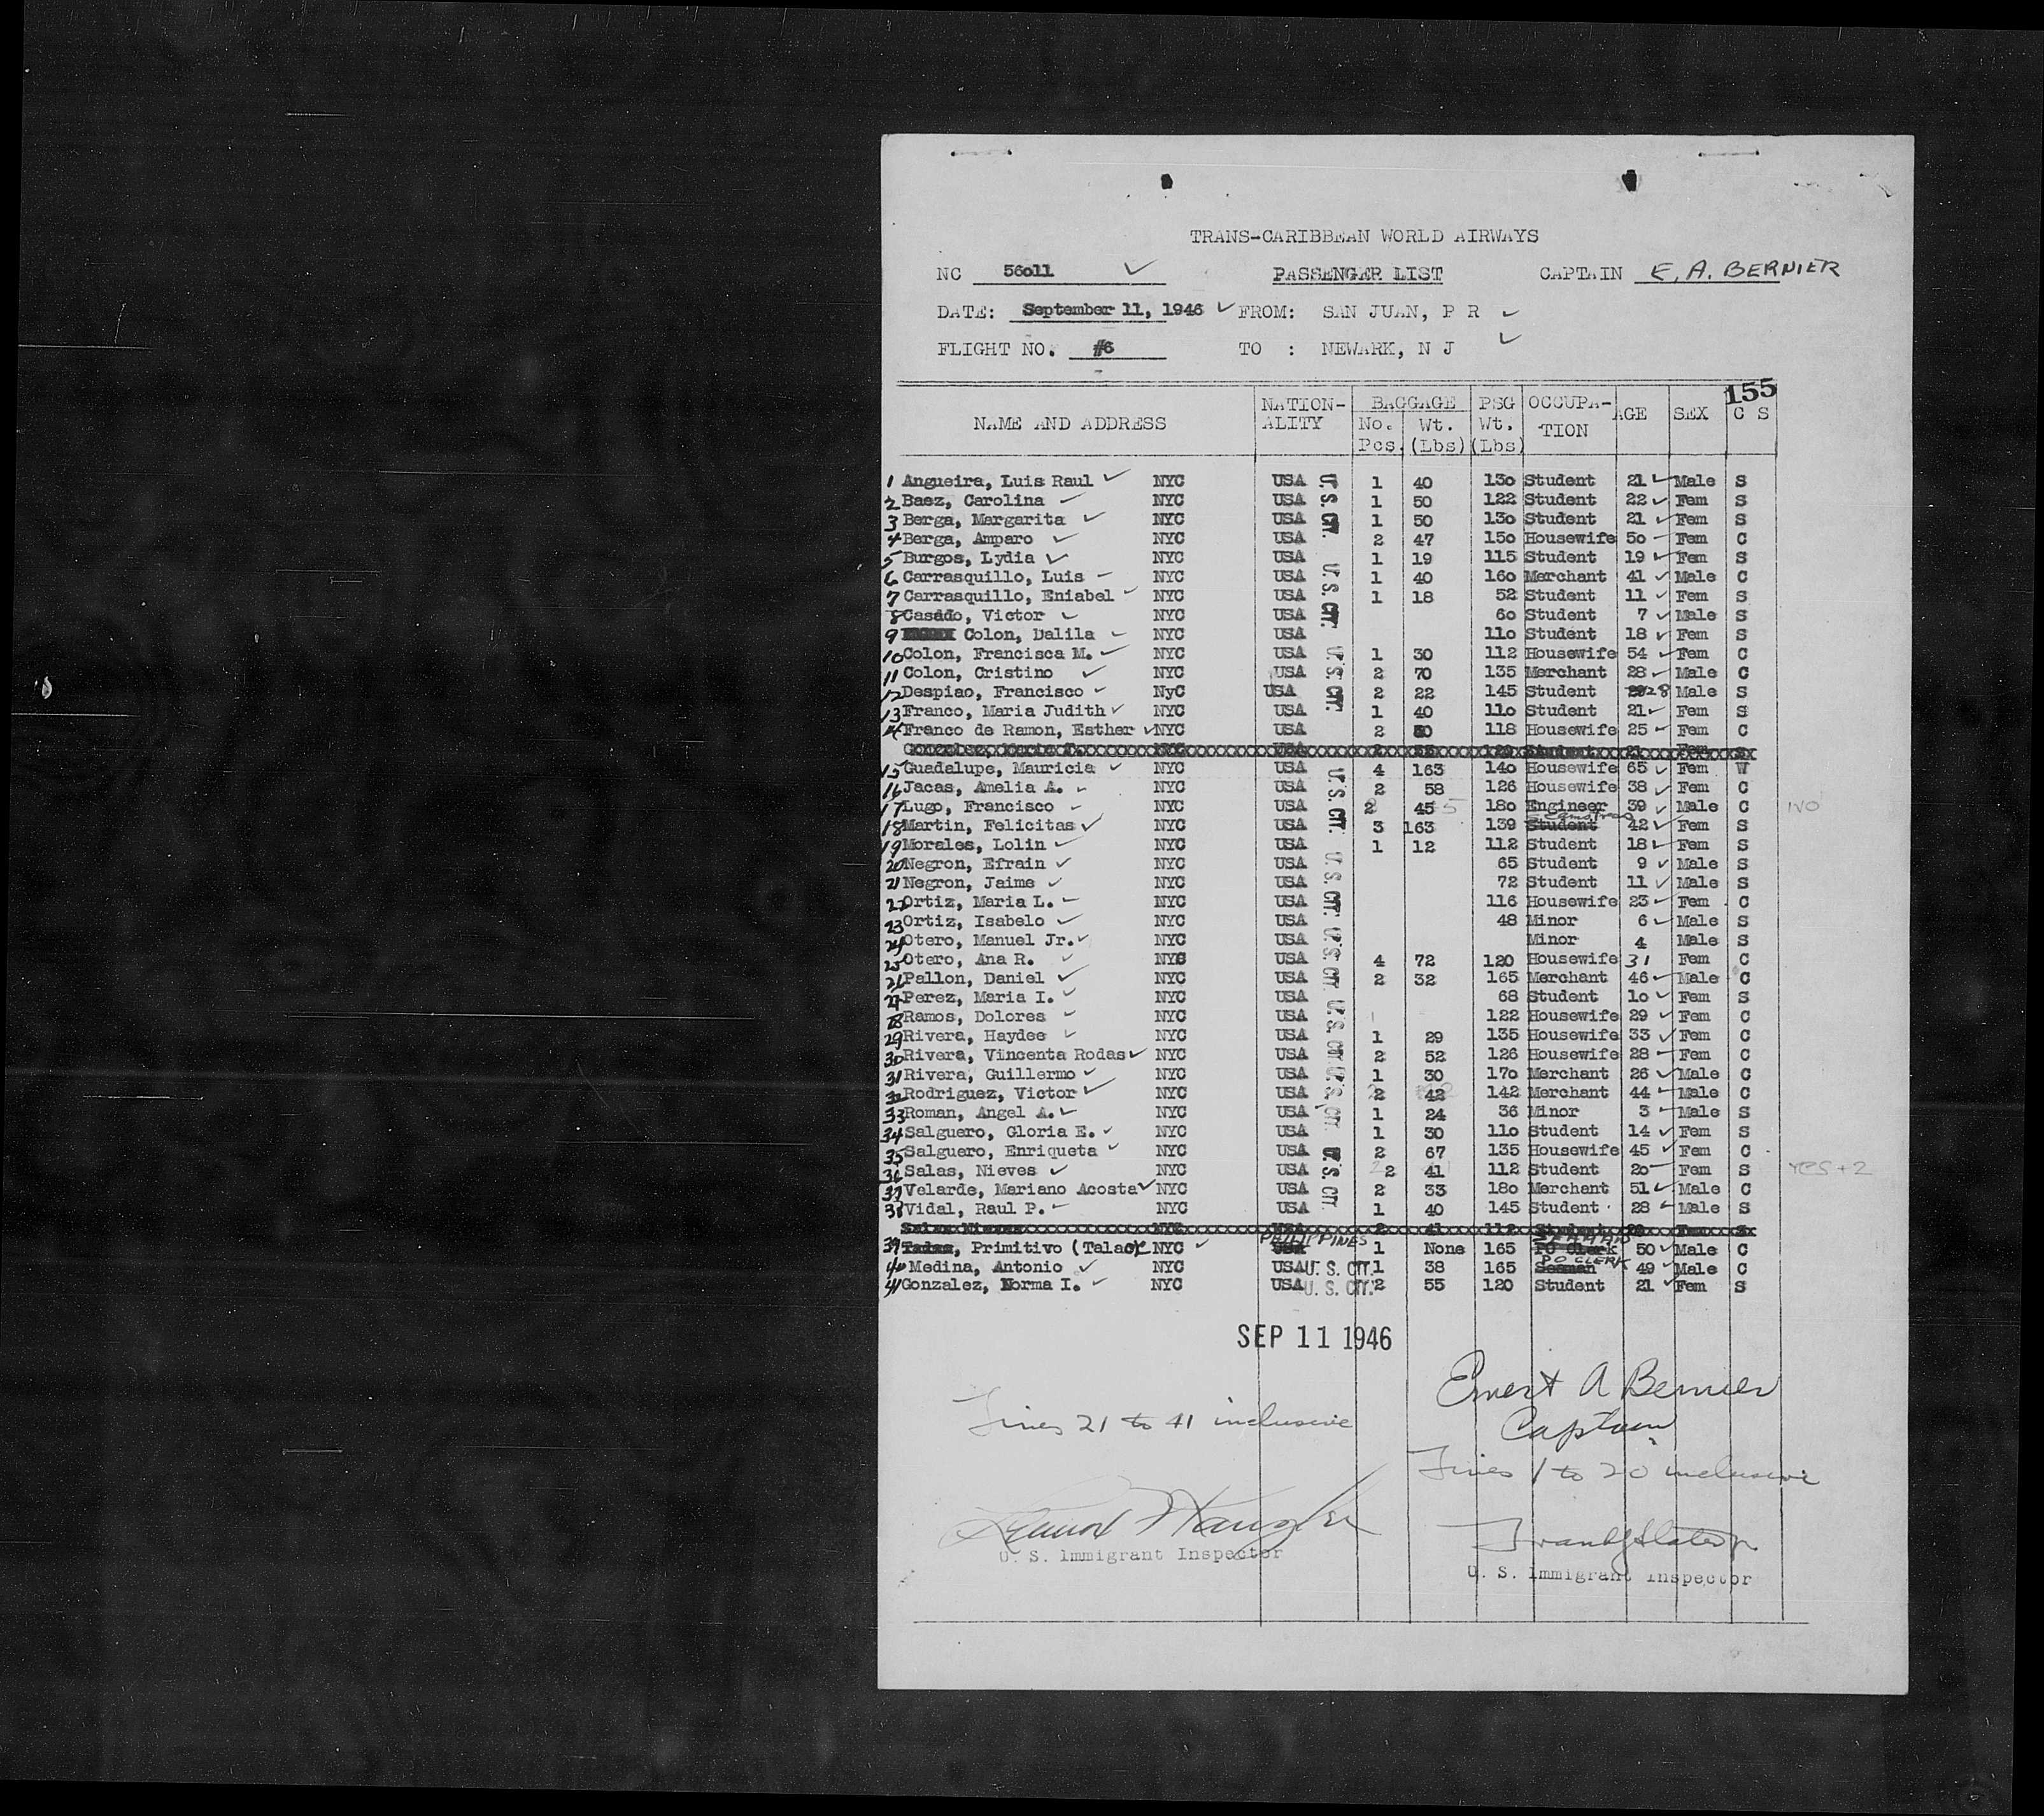 TRANS-CARIBBEAN WORLD AIRWAYS
NC 56o11 PASSENGER LIST CAPTAIN E. A. BERNIER
DATE: September 11, 1946 FROM: SAN JUAN, P R
FLIGHT NO. #6 TO : NEWARK, N J
155
NAME AND ADDRESS NATION-ALITY BAGGAGE No. Pcs. Wt. (Lbs) PSG Wt. (Lbs) OCCUPA-TION AGE SEX C S
1 Angueira, Luis Raul NYC USA 1 40 13o Student 21 Male S
2 Baez, Carolina NYC USA 1 50 122 Student 22 Fem S
3 Berga, Margarita NYC USA 1 50 13o Student 21 Fem S
4 Berga, Amparo NYC USA 2 47 15o Housewife 5o Fem C
5 Burgos, Lydia NYC USA 1 19 115 Student 19 Fem S
6 Carrasquillo, Luis NYC USA 1 40 16o Merchant 41 Male C
7 Carrasquillo, Eniabel NYC USA 1 18 52 Student 11 Fem S
8 Casado, Victor NYC USA 6o Student 7 Male S
9 Colon, Dalila NYC USA 11o Student 18 Fem S
10 Colon, Francisca M. NYC USA 1 30 112 Housewife 54 Fem C
11 Colon, Cristino NYC USA 2 70 135 Merchant 28 Male C
12 Despiao, Francisco NyC USA 2 22 145 Student 28 Male S
13 Franco, Maria Judith NYC USA 1 40 11o Student 21 Fem S
14 Franco de Ramon, Esther NYC USA 2 50 118 Housewife 25 Fem C
15 Guadalupe, Mauricia NYC USA 4 163 14o Housewife 65 Fem W
16 Jacas, Amelia A. NYC USA 2 58 126 Housewife 38 Fem C
17 Lugo, Francisco NYC USA 2 45 18o Engineer 39 Male C NO
18 Martin, Felicitas NYC USA 3 163 139 Student 42 Fem S
19 Morales, Lolin NYC USA 1 12 112 Student 18 Fem S
20 Negron, Efrain NYC USA 65 Student 9 Male S
21 Negron, Jaime NYC USA 72 Student 11 Male S
22 Ortiz, Maria L. NYC USA 116 Housewife 23 Fem C
23 Ortiz, Isabelo NYC USA 48 Minor 6 Male S
24 Otero, Manuel Jr. NYC USA Minor 4 Male S
25 Otero, Ana R. NYC USA 4 72 120 Housewife 31 Fem C
26 Pallon, Daniel NYC USA 2 32 165 Merchant 46 Male C
27 Perez, Maria I. NYC USA 68 Student 1o Fem S
28 Ramos, Dolores NYC USA 122 Housewife 29 Fem C
29 Rivera, Haydee NYC USA 1 29 135 Housewife 33 Fem C
30 Rivera, Vincenta Rodas NYC USA 2 52 126 Housewife 28 Fem C
31 Rivera, Guillermo NYC USA 1 30 17o Merchant 26 Male C
32 Rodriguez, Victor NYC USA 2 42 142 Merchant 44 Male C
33 Roman, Angel A. NYC USA 1 24 36 Minor 3 Male S
34 Salguero, Gloria E. NYC USA 1 30 11o Student 14 Fem S
35 Salguero, Enriqueta NYC USA 2 67 135 Housewife 45 Fem C
36 Salas, Nieves NYC USA 2 41 112 Student 2o Fem S YES+2
37 Velarde, Mariano Acosta NYC USA 2 33 18o Merchant 51 Male C
38 Vidal, Raul P. NYC USA 1 40 145 Student 28 Male S
Salas Nieves NYC USA 2 41 112 Student 20 Fem S
PHILIPPINES SEAMAN
39 Primitivo (Talac) NYC USA 1 None 165 PO Clerk 50 Male C
PO CLERK
40 Medina, Antonio NYC USA U. S. CIT. 1 38 165 Seaman 49 Male C
41 Gonzalez, Norma I. NYC USA U. S. CIT. 2 55 120 Student 21 Fem S
U. S. CIT.
U. S. CIT.
U. S. CIT.
U. S. CIT.
U. S. CIT.
U. S. CIT.
U. S. CIT.
U. S. CIT.
U. S. CIT.
SEP 11 1946
Ernest A Bernier
Captain
Lines 21 to 41 inclusive
Lines 1 to 20 inclusive
U. S. Immigrant Inspector
U. S. Immigrant Inspector